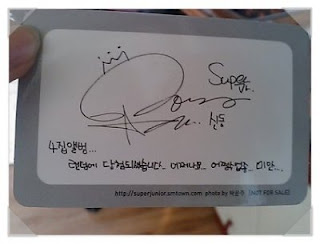 Super
신동
4집앨범...
랜덤에 당첨되셨습니다.. 어쩌나요.. 미안...
http://superjunior.smtown.com photo by [NOT FOR SALE]